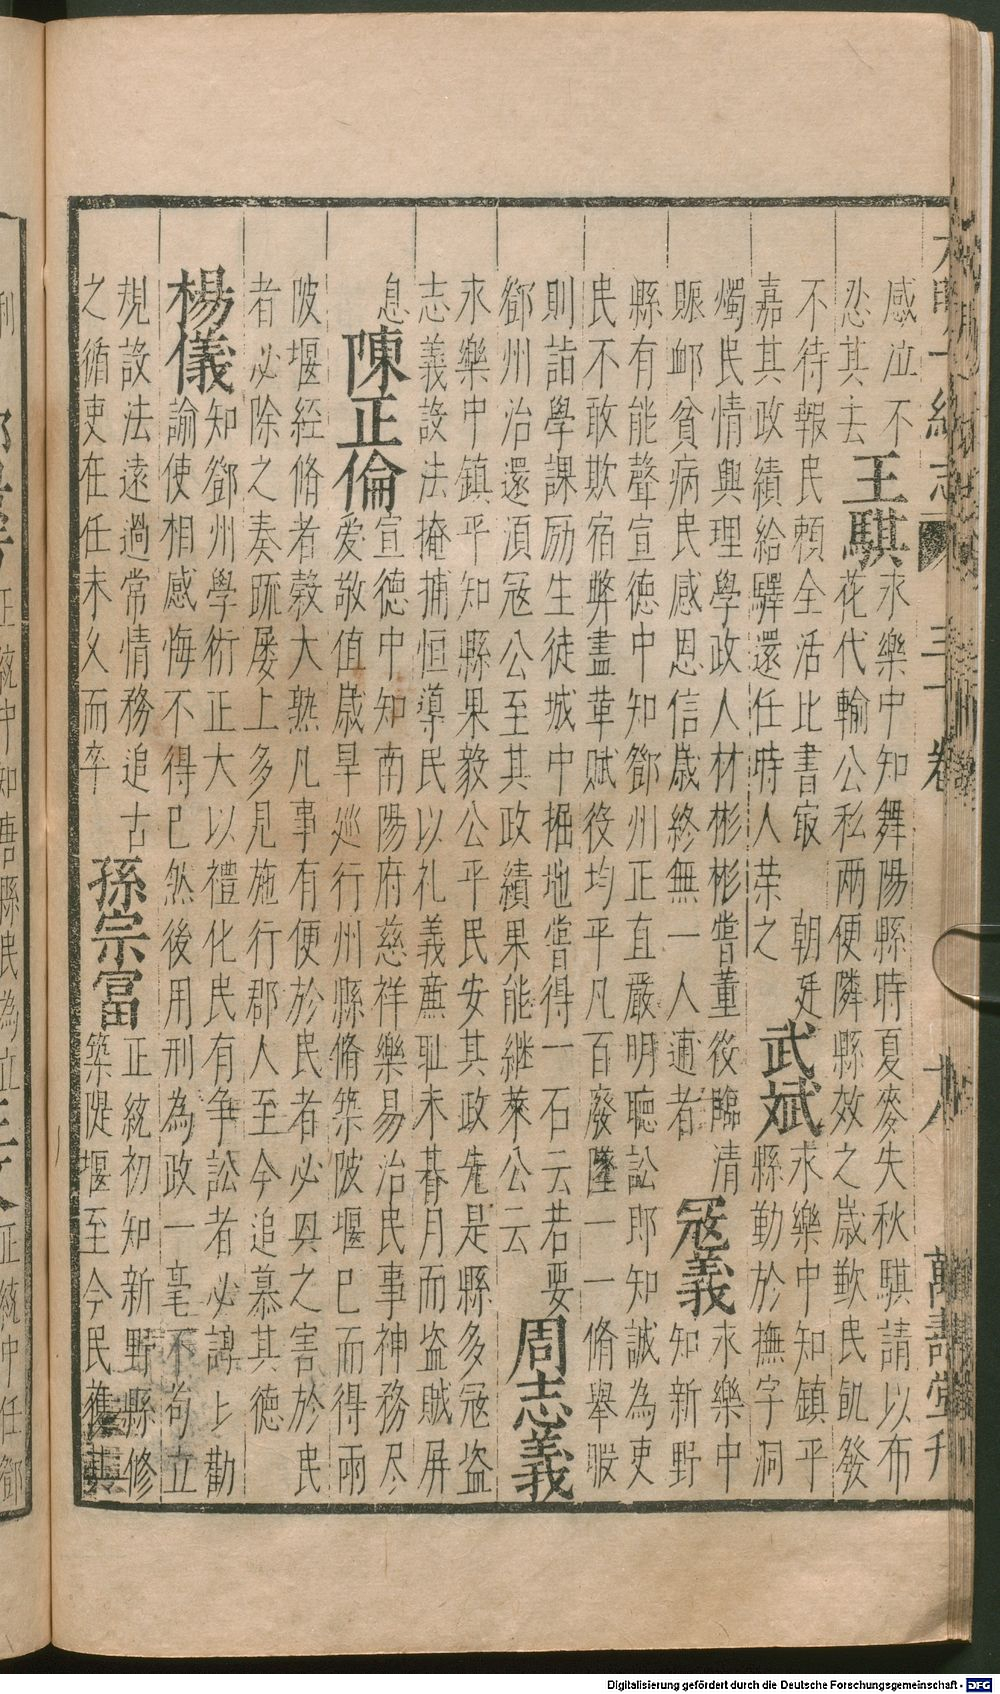 大明一統志 三十卷 十八 萬壽堂刊
感泣不
忍其去
王騏
永樂中知舞陽縣時夏麥失秋騏請以布
花代輸公私兩便隣縣效之歲歉民飢發
不待報民賴全活比書㝡 朝廷
嘉其政績給驛還任時人荣之
武斌
永樂中知鎮平
縣勤於撫字洞
燭民情興理學政人材彬彬嘗董役臨清
賑卹貧病民感恩信歲終無一人逋者
寇義
永樂中
知新野
縣有能聲宣德中知鄧州正直嚴明聽訟即知誠為吏
民不敢欺宿弊盡革賦役均平凡百廢墜一一脩舉暇
則詣學課励生徒城中掘地嘗得一石云若要
鄧州治還須寇公至其政績果能繼萊公云
周志義
永樂中鎮平知縣果毅公平民安其政先是縣多寇盜
志義設法掩捕恒導民以礼義亷耻未朞月而盜賊屏
息
陳正倫
宣德中知南陽府慈祥樂易治民事神務尽
爱敬值歲旱廵行州縣脩築陂堰已而得雨
陂堰經脩者榖大熟凡事有便於民者必與之害於民
者必除之奏疏屡上多見施行郡人至今追慕其德
楊儀
知鄧州學術正大以禮化民有争訟者必諄〻勸
諭使相感悔不得已然後用刑為政一毫不苟立
規設法遠過常情務追古
之循吏在任未久而卒
孫宗富
正統初知新野縣修
築隄堰至今民獲其
利
正統中知唐縣民為立
正統中任鄧
Digitalisierung gefördert durch die Deutsche Forschungsgemeinschaft - DFG